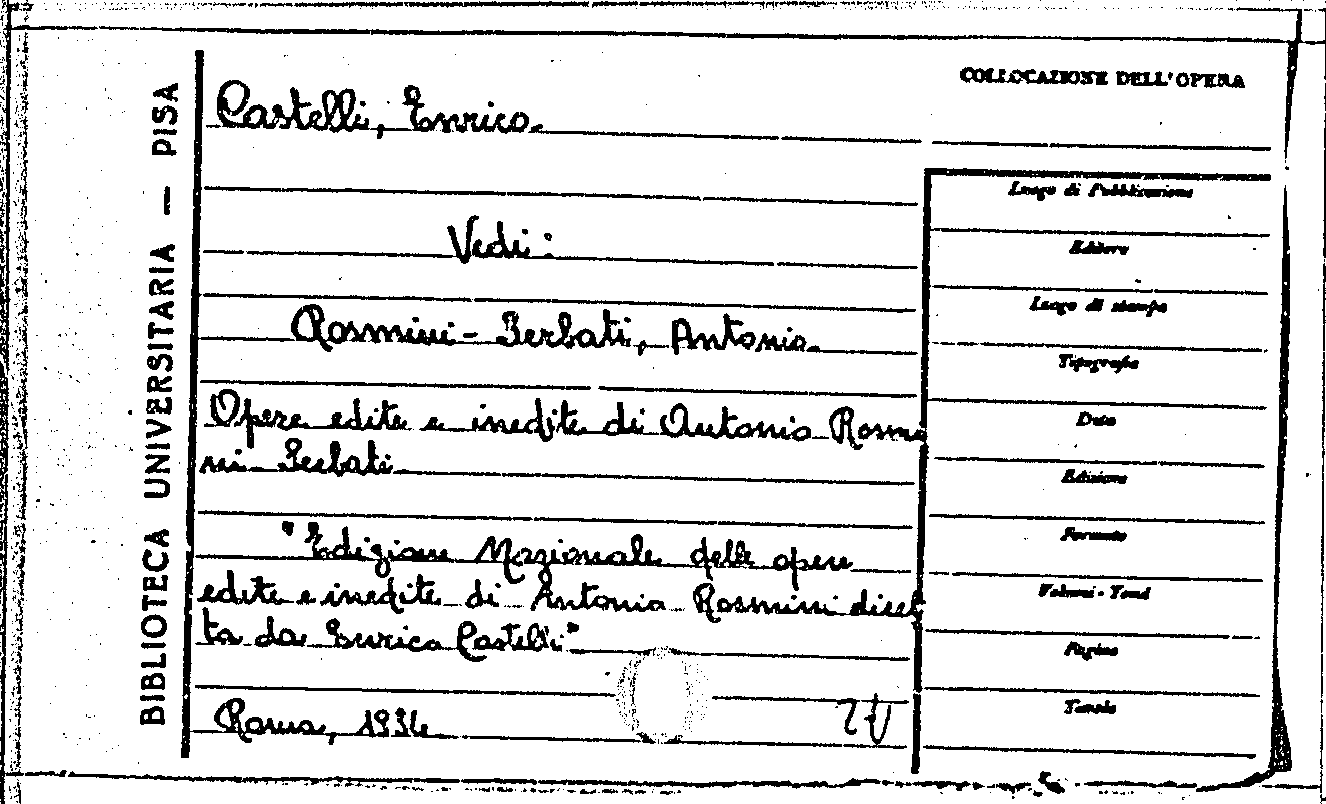 BIBLIOTECA UNIVERSITARIA — PISA
COLLOCAZIONE DELL'OPERA
Castelli, Enrico.
Vedi:
Rosmini-Serbati, Antonio.
Opere edite e inedite di Antonio Rosmi
ni Serbati
"Edizione Nazionale delle opere
edite e inedite di Antonio Rosmini diret
ta da Enrico Castelli"
Roma, 1934
Luogo di Pubblicazione
Editore
Luogo di stampa
Tipografia
Data
Edizione
Formato
Volumi - Tomi
Pagine
Tavole